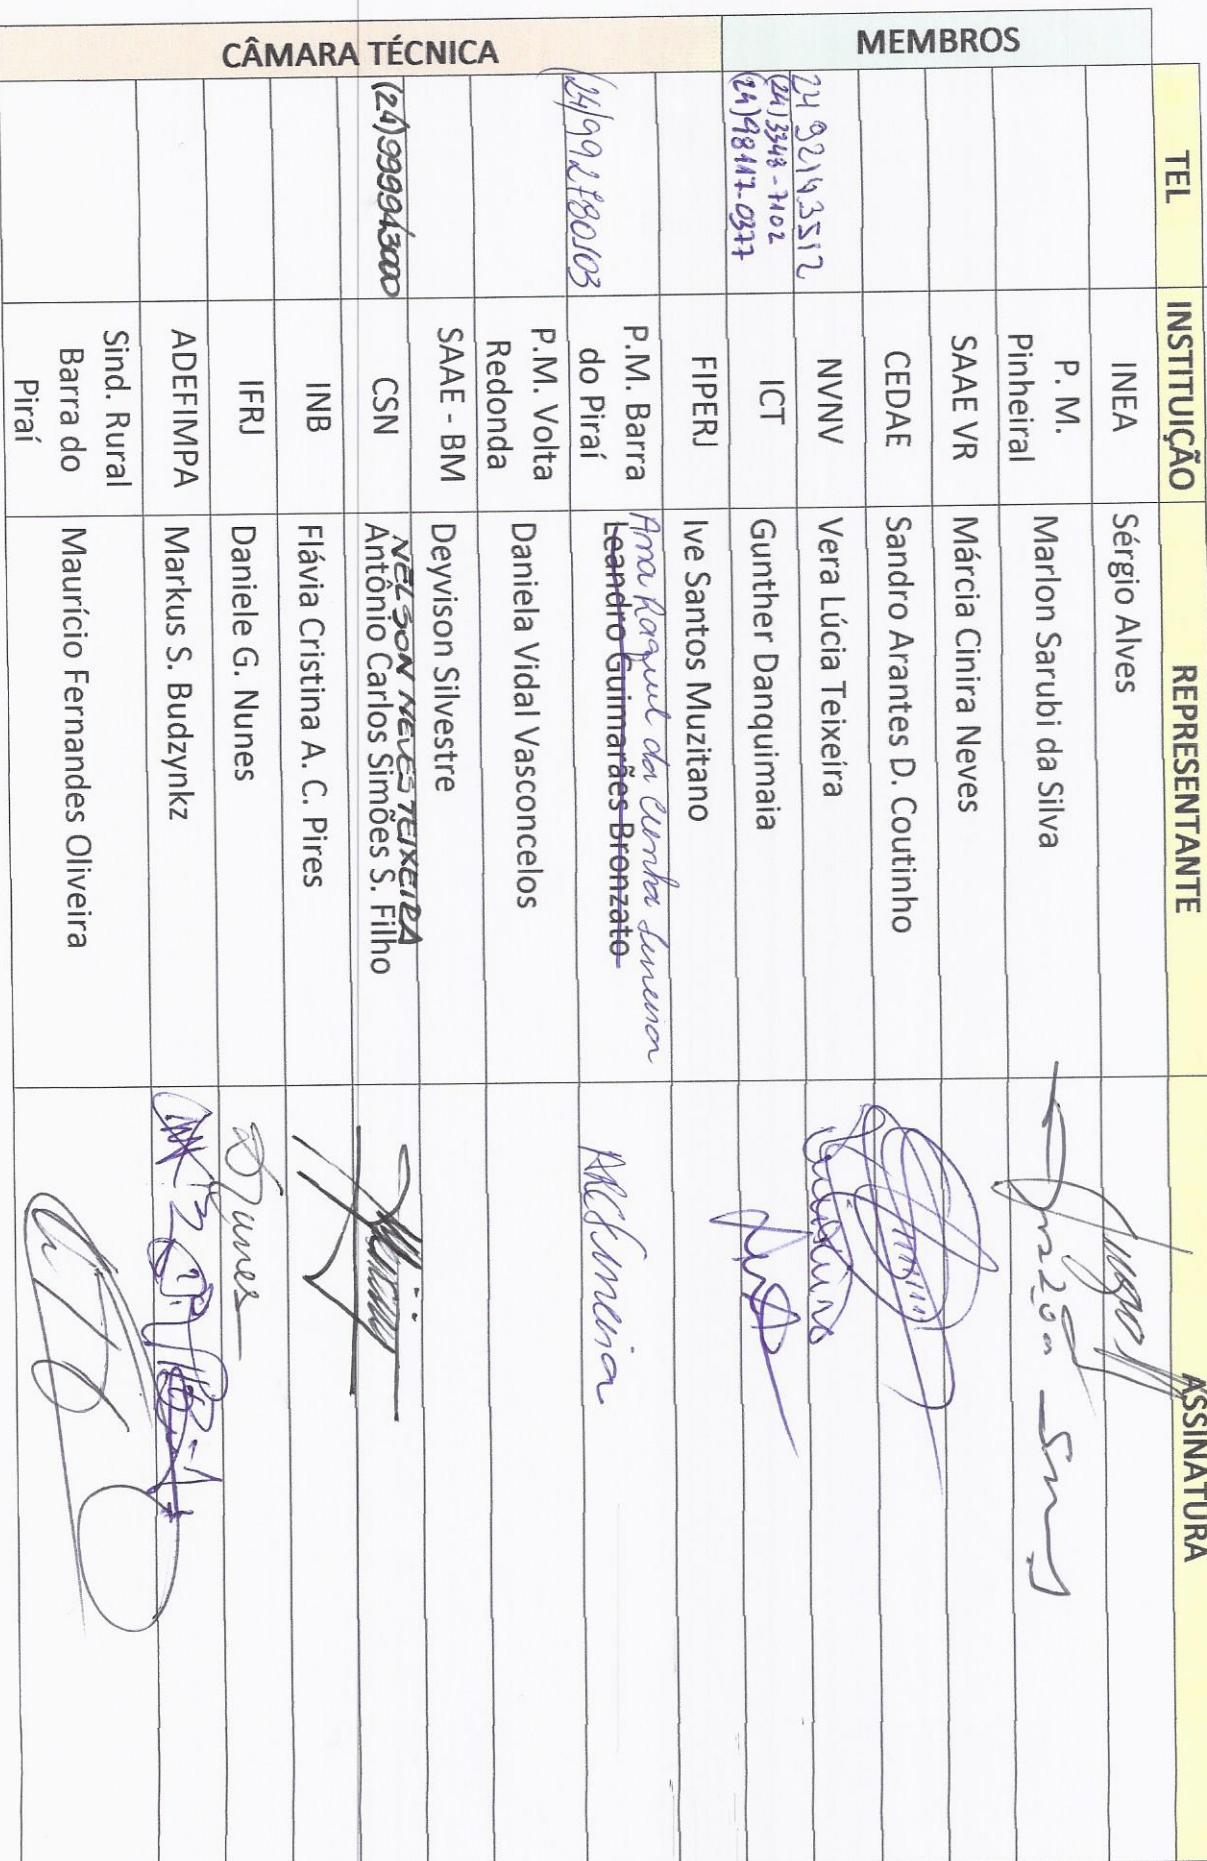 TEL INSTITUIÇÃO REPRESENTANTE ASSINATURA
MEMBROS
INEA Sérgio Alves
P. M.
Pinheiral
Marlon Sarubi da Silva
SAAE VR Márcia Cinira Neves
CEDAE Sandro Arantes D. Coutinho
24 992143512 NVNV Vera Lúcia Teixeira
(24) 3348-7102
(24) 98117-0377
ICT Gunther Danquimaia
CÂMARA TÉCNICA
FIPERJ Ive Santos Muzitano
(24) 992780503
P.M. Barra
do Piraí
Ana Raquel da Cunha
Leandro Guimarães Bronzato
P.M. Volta
Redonda
Daniela Vidal Vasconcelos
SAAE - BM Deyvison Silvestre
(24) 999943000 CSN
NELSON NEVES TEIXEIRA
Antônio Carlos Simões S. Filho
INB Flávia Cristina A. C. Pires
IFRJ Daniele G. Nunes
ADEFIMPA Markus S. Budzynkz
Sind. Rural
Barra do
Piraí
Maurício Fernandes Oliveira